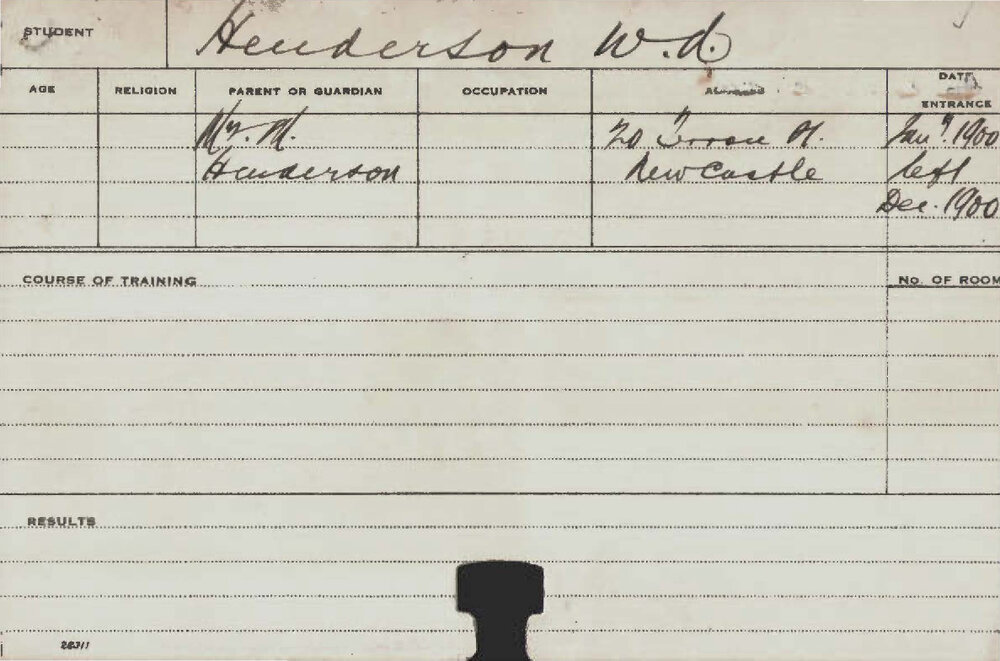 STUDENT Henderson W.A.
AGE RELIGION PARENT OR GUARDIAN OCCUPATION ADDRESS DATE
ENTRANCE
20 St. Jany. 1900
Henderson Newcastle left
Dec. 1900
COURSE OF TRAINING No. OF ROOM
RESULTS